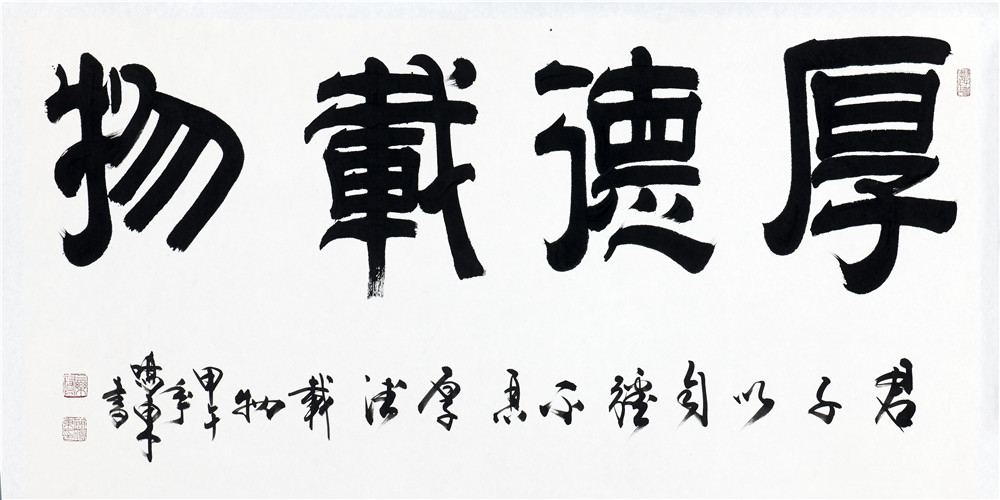 厚德載物
君子以自强不息厚德載物甲午年
書